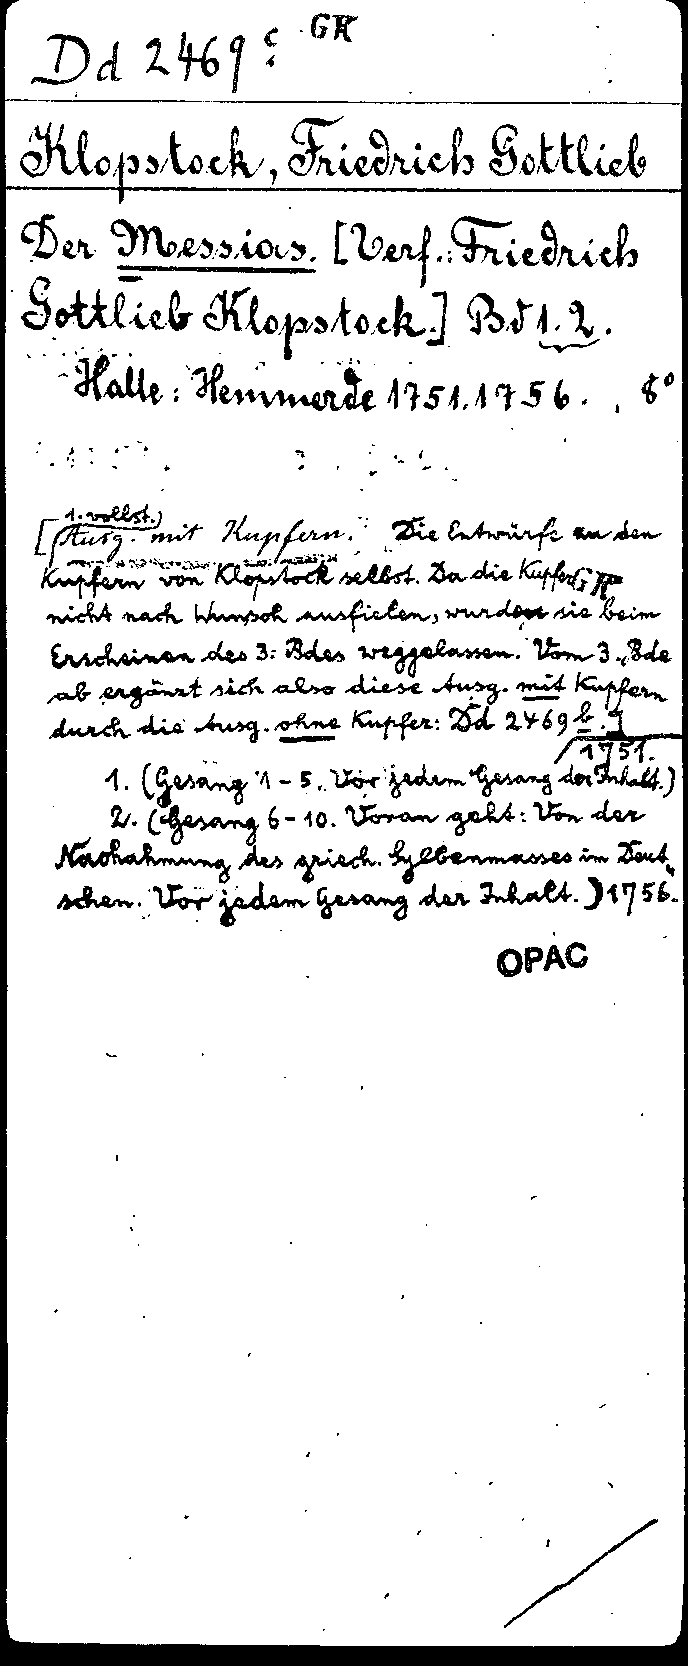 Dd 2469 c. GK
Klopstock, Friedrich Gottlieb
Der Messias. [Verf.: Friedrich
Gottlieb Klopstock.] Bd 1. 2.
Halle: Hemmerde 1751. 1756. 8°
1. vollst.)
[Ausg. mit Kupfern. Die Entwürfe zu den
Kupfern von Klopstock selbst. Da die Kupfer GK
nicht nach Wunsch ausfielen, wurden sie beim
Erscheinen des 3. Bdes weggelassen. Vom 3. Bde
ab ergänzt sich also diese Ausg. mit Kupfern
durch die Ausg. ohne Kupfer: Dd 2469 b.]
1751.
1. (Gesang 1-5. Vor jedem Gesang der Inhalt.)
2. (Gesang 6-10. Voran geht: Von der
Nachahmung des griech. Sylbenmasses im Deut-
schen. Vor jedem Gesang der Inhalt.) 1756.
OPAC